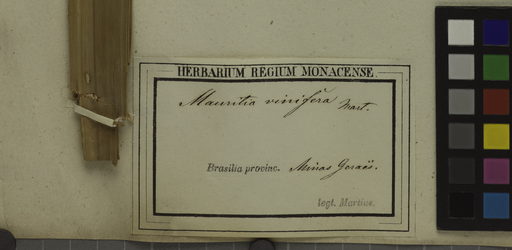 HERBARIUM REGIUM MONACENSE.
Mauritia vinifera Mart.
Brasilia provinc. Minas Geraës.
legt. Martius.